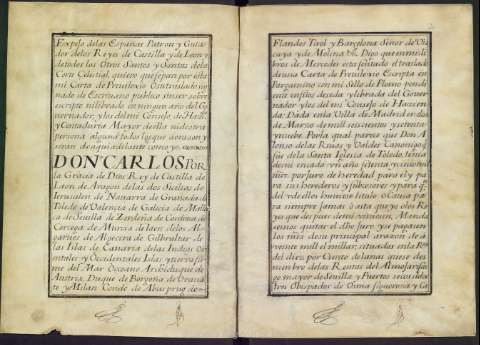 Espejo delas Españas Patron y Guia
dor delos Reyes de Castilla y de Leon y
detodos los Otros Santos y Santas dela
Corte Celestial, quiero que sepan por esta
mi Carta de Preuilexio Ousutraslado sig
nado de Escriuano publico sin ser sobre
escripto nilibrado en ningun año del Go
uernador, y los del mi Consejo de Haz.da
y Contaduria Mayor de ella ni de otra
persona alguna todos los que aora son y
seran de aqui adelante como yo
DON CARLOS POR
la Gracia de Dios Rey de Castilla de
Leon de Aragon delas dos Sicilias de
Ierusalen de Nauarra de Granada de
Toledo de Valencia de Galicia de Mallor
ca de Seuilla de Zerdeña de Cordoua de
Corcega de Murcia de Iaen delos Al
garues de Algecira de Gibraltar de
las Islas de Canaria delas Indias Ori
entales y Occidentales Islas y tierra fir
me del Mar Oceano Archiduque de
Austria Duque de Borgoña de Braua
te y Milan Conde de Abspurg de
Flandes Tirol y Barcelona Señor de Viz
caya y de Molina &c. Digo que en mis li
bros de Mercedes esta sentado el traslado
de una Carta de Preuilexio Escripta en
Pargamino con mi Sello de Plomo pendi
ente en filos de seda y librada del Gouer
nador y los del mi Consejo de Hazien
da: Dada en la Villa de Madrid en dos
de Marzo de mill seiscientos y setenta
y nueue Por la qual parece que Don A
lonso delas Rinas y Valdes Canonigo q
fue dela Santa Iglesia de Toledo tenia
de mi en cada vn año
por juro de heredad para el y pa
ra sus herederos y subcesores y para q.n
del v de ellos huuiese titulo o Causa pa
ra siempre Iamas o asta que yo o los Re
yes que despues de mi viniesen, Manda
semos quitar el dho Juro y se pagasen
los mrs de su principal arazon de a
veinte mill el millar; situadas en la Ren
del diez por Ciento de lanas que es des
miembro delas Rentas del Almojarifaz
go mayor de Seuilla y Puertos secos delos
tres Obispados de Osma Siguenza y Ca